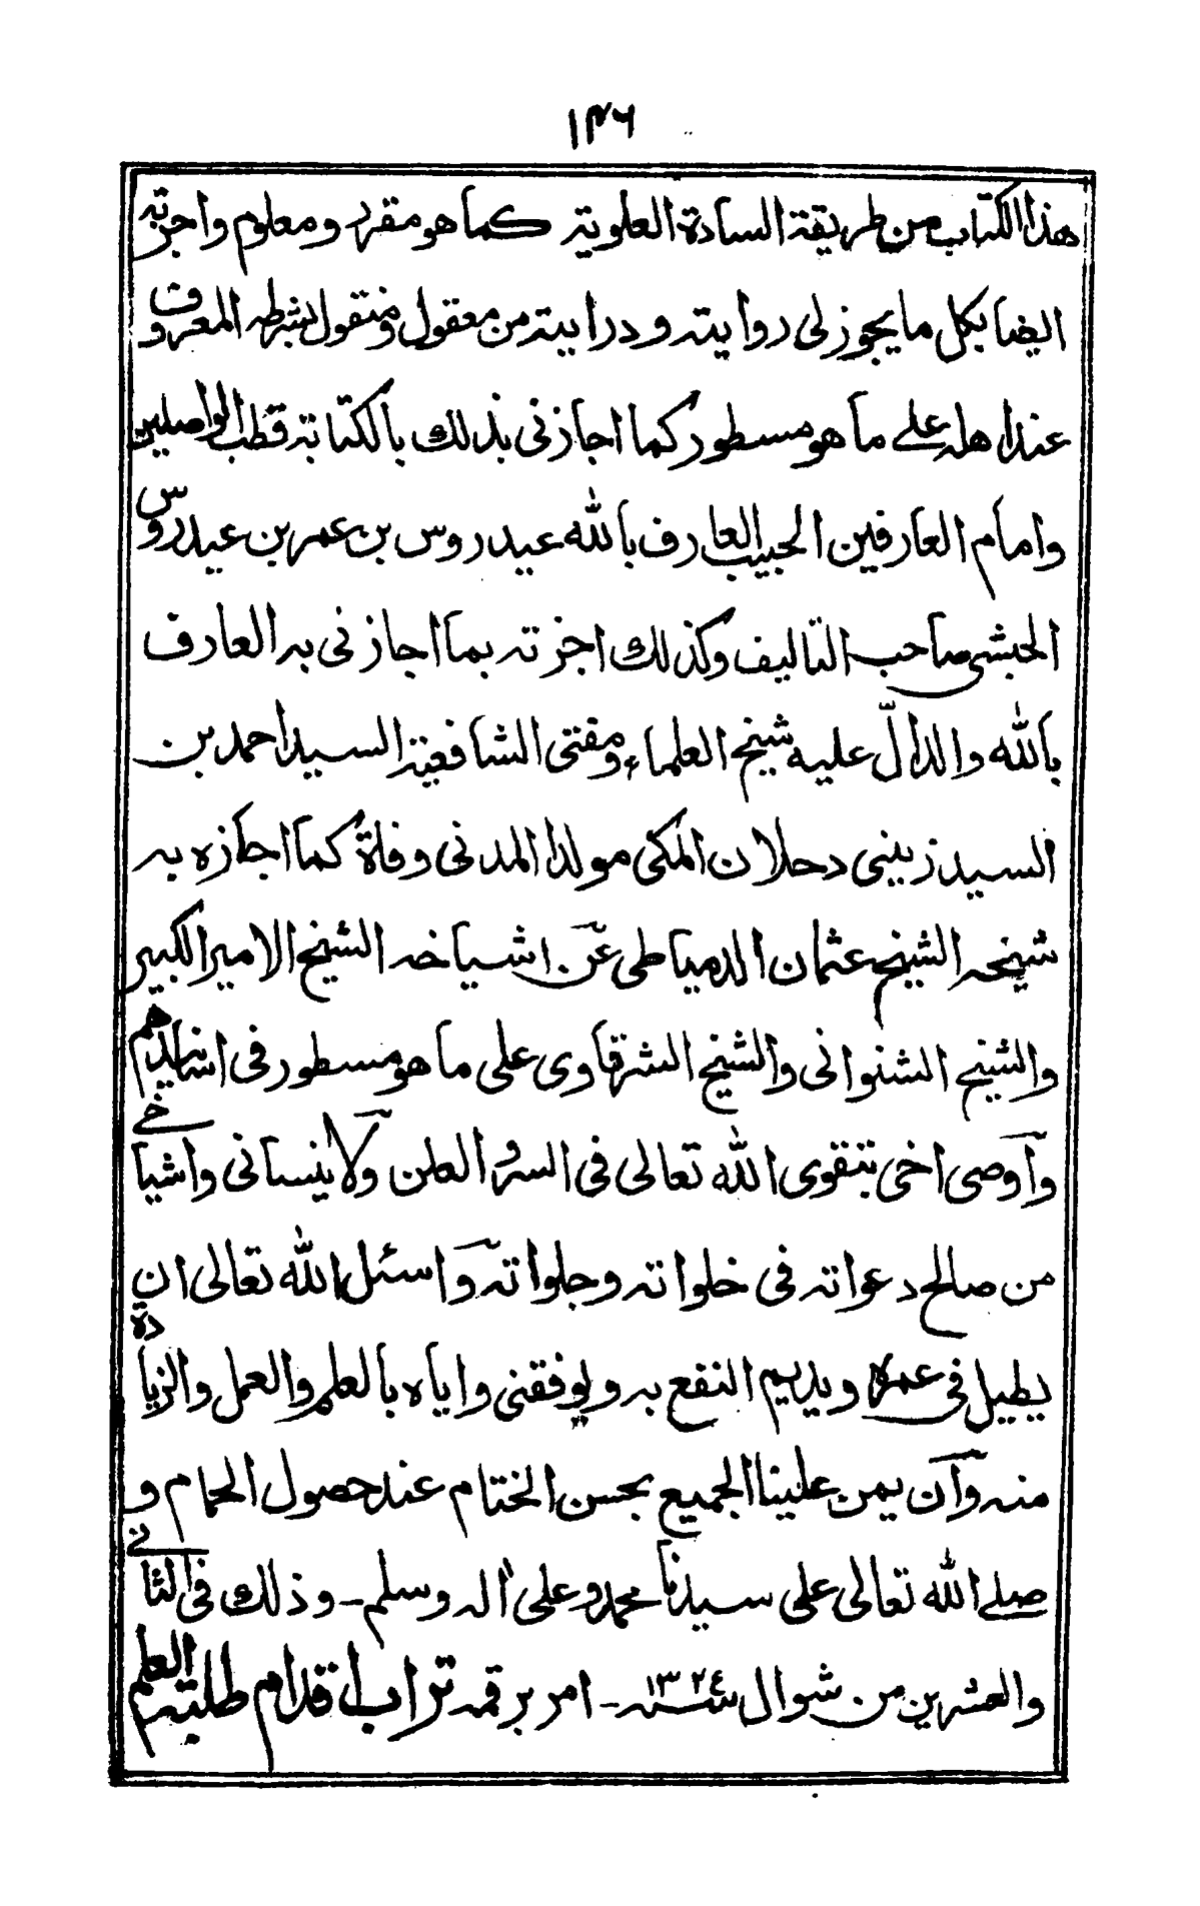 ١٣٦
هذا الكتاب من طريقة السادة العلوية كما هو مقرر ومعلوم واجزته
ايضا بكل ما يجوز لى روايته ودرايته من معقول ومنقول بشرطه المعروف
عند اهله على ما هو مسطور كما اجازنى بذلك بالكتابة قطب الواصلين
وامام العارفين الحبيب العارف بالله عيدروس بن عمر بن عيدروس
الحبشى صاحب التاليف وكذلك اجزته بما اجازنى به العارف
بالله والدالّ عليه شيخ العلماء ومفتى الشافعية السيد احمد بن
السيد زينى دحلان المكى مولدا المدنى وفاة كما اجازه به
شيخه الشيخ عثمان الدمياطى عن اشياخه الشيخ الامير الكبير
والشيخ الشنوانى والشيخ الشرقاوى على ما هو مسطور فى اسانيدهم
وآوصى اخى بتقوى الله تعالى فى السر والعلن ولا ينسانى واشياخى
من صالح دعواته فى خلواته وجلواته وآسئل الله تعالى ان
يطيل فى عمره ويديم النفع به ويوفقنى واياه بالعلم والعمل والزيادة
منه وآن يمن علينا الجميع بحسن الختام عند حصول الحمام و
صلے الله تعالى على سيدنا محمد وعلى اله وسلم - وذلك فى الثانى
والعشرين من شوال سنه ١٣٢٤ - امر برقمه تراب اقدام طلبة العلم